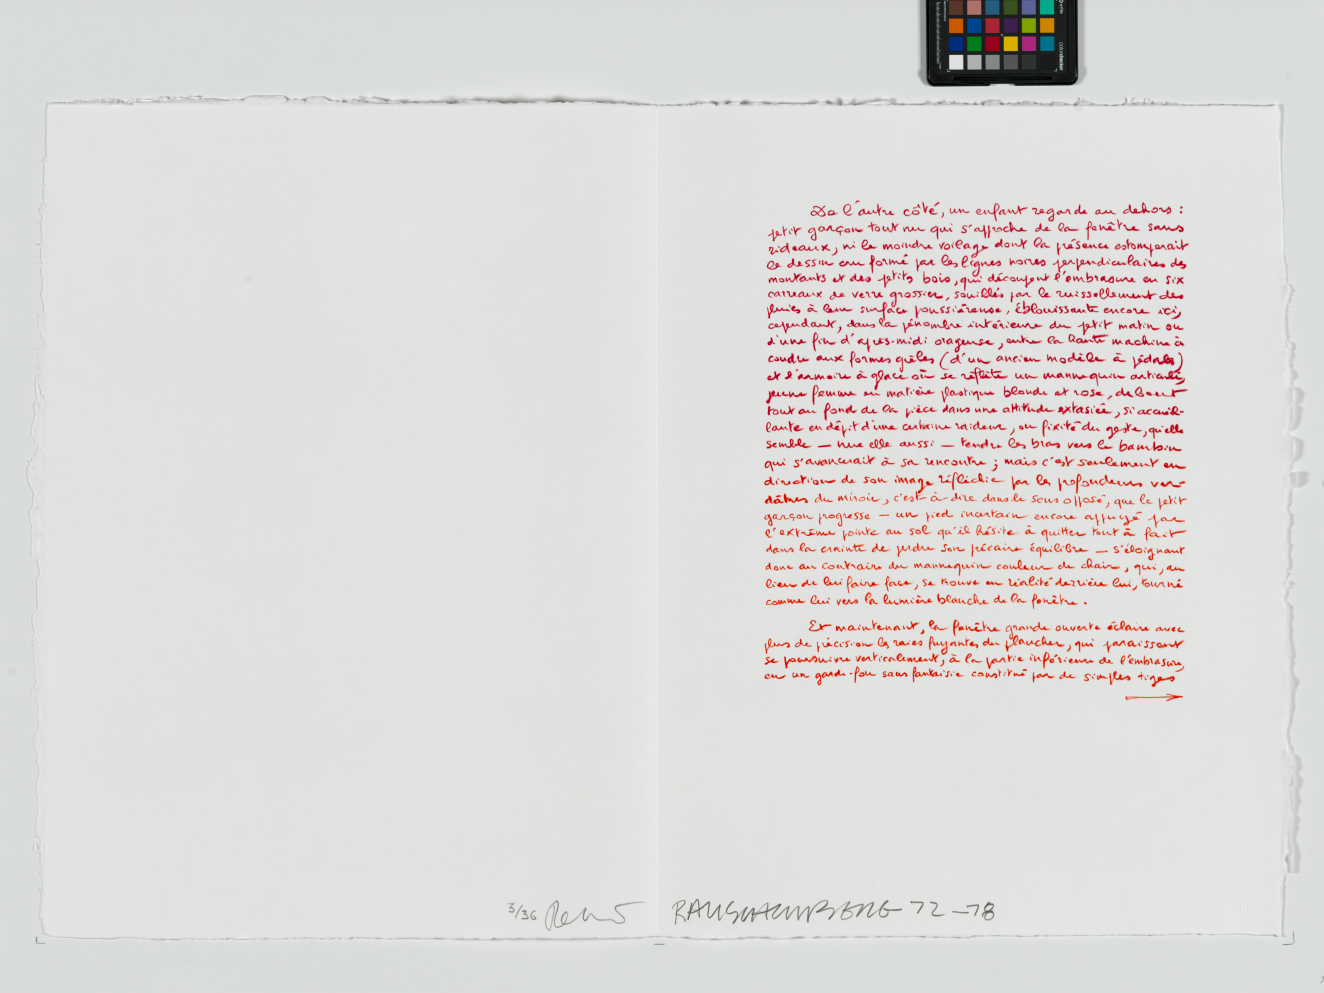 De l'autre côté, un enfant regarde au dehors :
petit garçon tout nu qui s'approche de la fenêtre sans
rideaux, ni le moindre voilage dont la présence estomperait
le dessin cru formé par les lignes noires perpendiculaires des
montants et des petits bois, qui découpent l'embrasure en six
carreaux de verre grossier, souillés par le ruissellement des
pluies à leur surface poussiéreuse, éblouissante encore ici,
cependant, dans la pénombre intérieure du petit matin ou
d'une fin d'après-midi orageuse, entre la haute machine à
coudre aux formes grêles (d'un ancien modèle à pédale)
et l'armoire à glace où se reflète un mannequin articulé,
jeune femme en matière plastique blonde et rose, debout
tout au fond de la pièce dans une attitude extasiée, si accueil-
lante en dépit d'une certaine raideur, ou fixité du geste, qu'elle
semble — nue elle aussi — tendre les bras vers le bambin
qui s'avancerait à sa rencontre ; mais c'est seulement en
direction de son image réfléchie par les profondeurs ver-
dâtres du miroir, c'est-à-dire dans le sens opposé, que le petit
garçon progresse — un pied incertain encore appuyé par
l'extrême pointe au sol qu'il hésite à quitter tout à fait
dans la crainte de perdre son précaire équilibre — s'éloignant
donc au contraire du mannequin couleur de chair, qui, au
lieu de lui faire face, se trouve en réalité derrière lui, tourné
comme lui vers la lumière blanche de la fenêtre.
Et maintenant, la fenêtre grande ouverte éclaire avec
plus de précision les raies fuyantes du plancher, qui paraissent
se poursuivre verticalement, à la partie inférieure de l'embrasure,
en un garde-fou sans fantaisie constitué par de simples tiges
3/36 RAUSCHENBERG 72-78